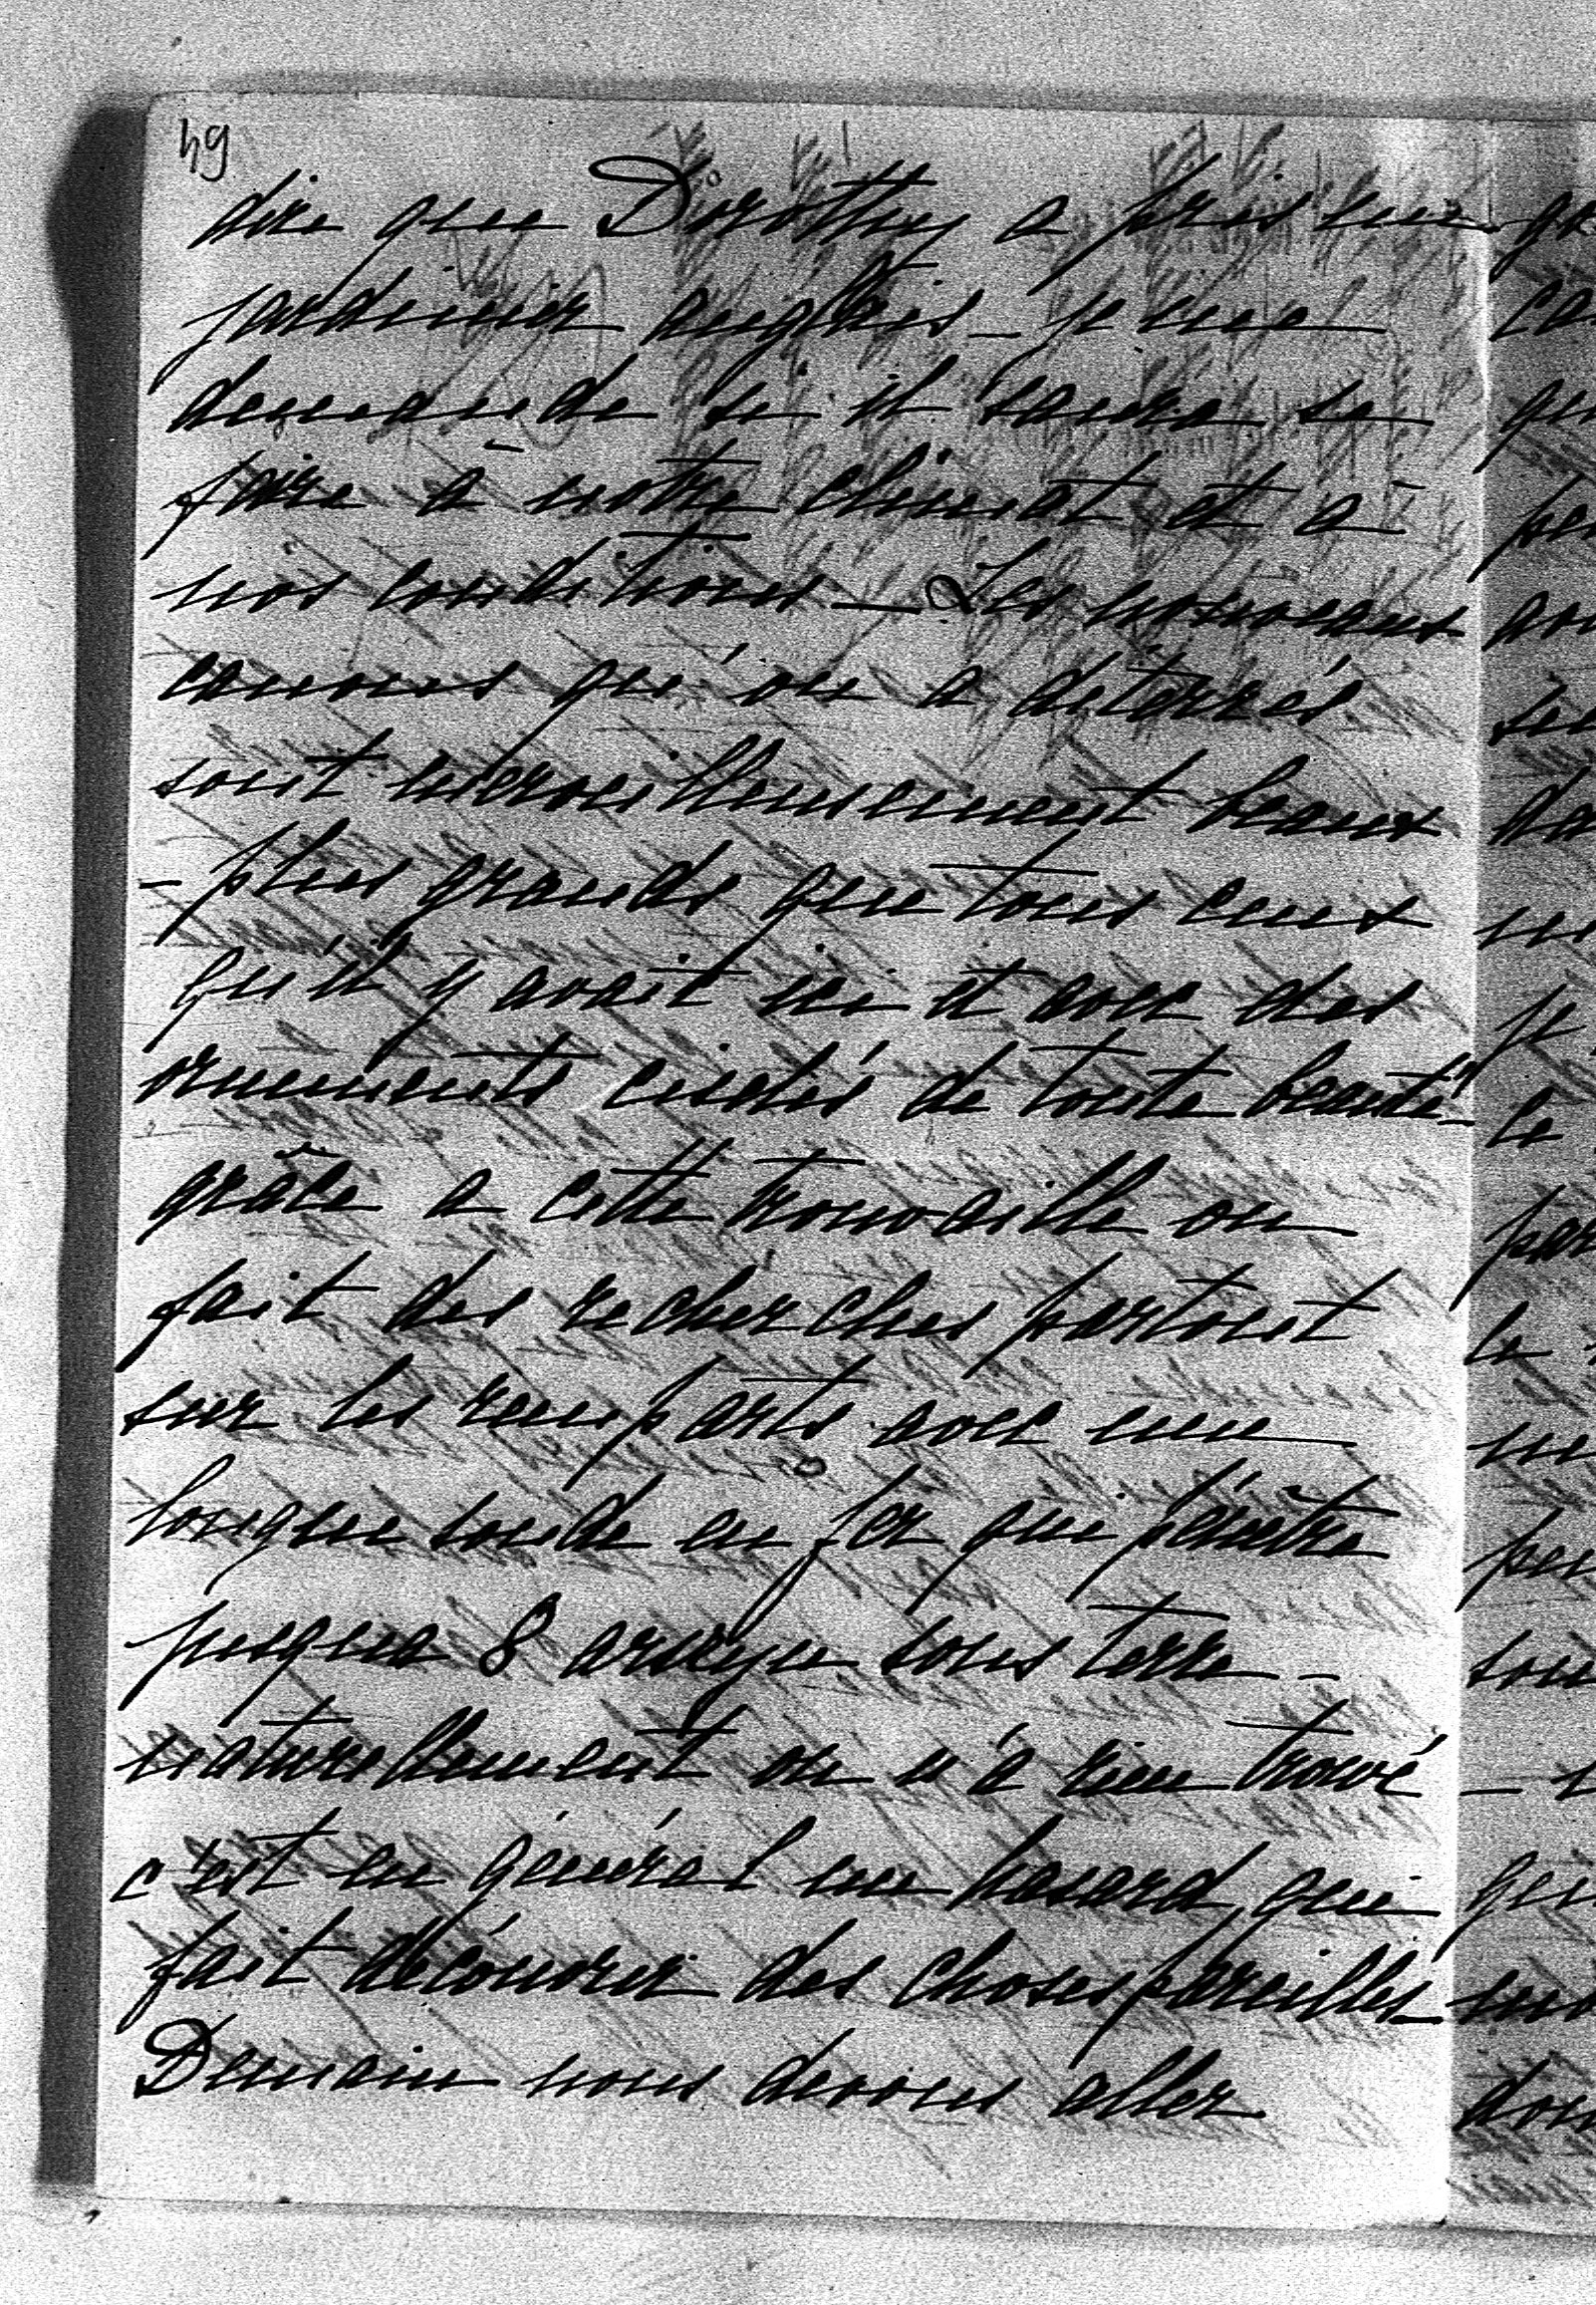 49
dire que Dorothy a pris un
jardinier anglais _ je me
demande si il saura se
faire à notre climat et à
nos conditions _ Les nouveaux
canons qu'on a déterrés
sont merveilleusement beaux
- plus grands que tous ceux
qu'il y avait ici et avec des
ornements ciselés de toute beauté _
grâce a cette trouvaille on
fait des recherches partout
sur les remparts avec une
longue sonde en fer qui pénètre
jusqua 8 arsgin sous terre _
naturellement on n'a rien trouvé
c'est en général un hasard qui
fait découvrir des choses pareilles _
Demain nous devons aller